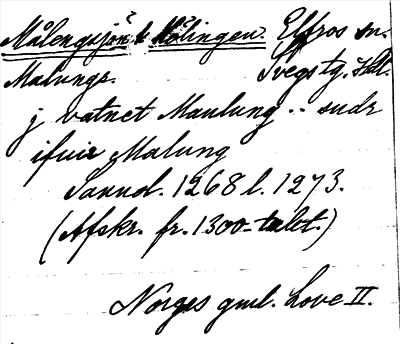 Målengsjön & Målingen. Elfros sn.
Malungr. Svegs tg. Häll.
j vatnet Maulung .. sudr
ifuir Malung
Sannol. 1268 l. 1273.
(Afskr. fr. 1300-talet.)
Norges gml. Love II.